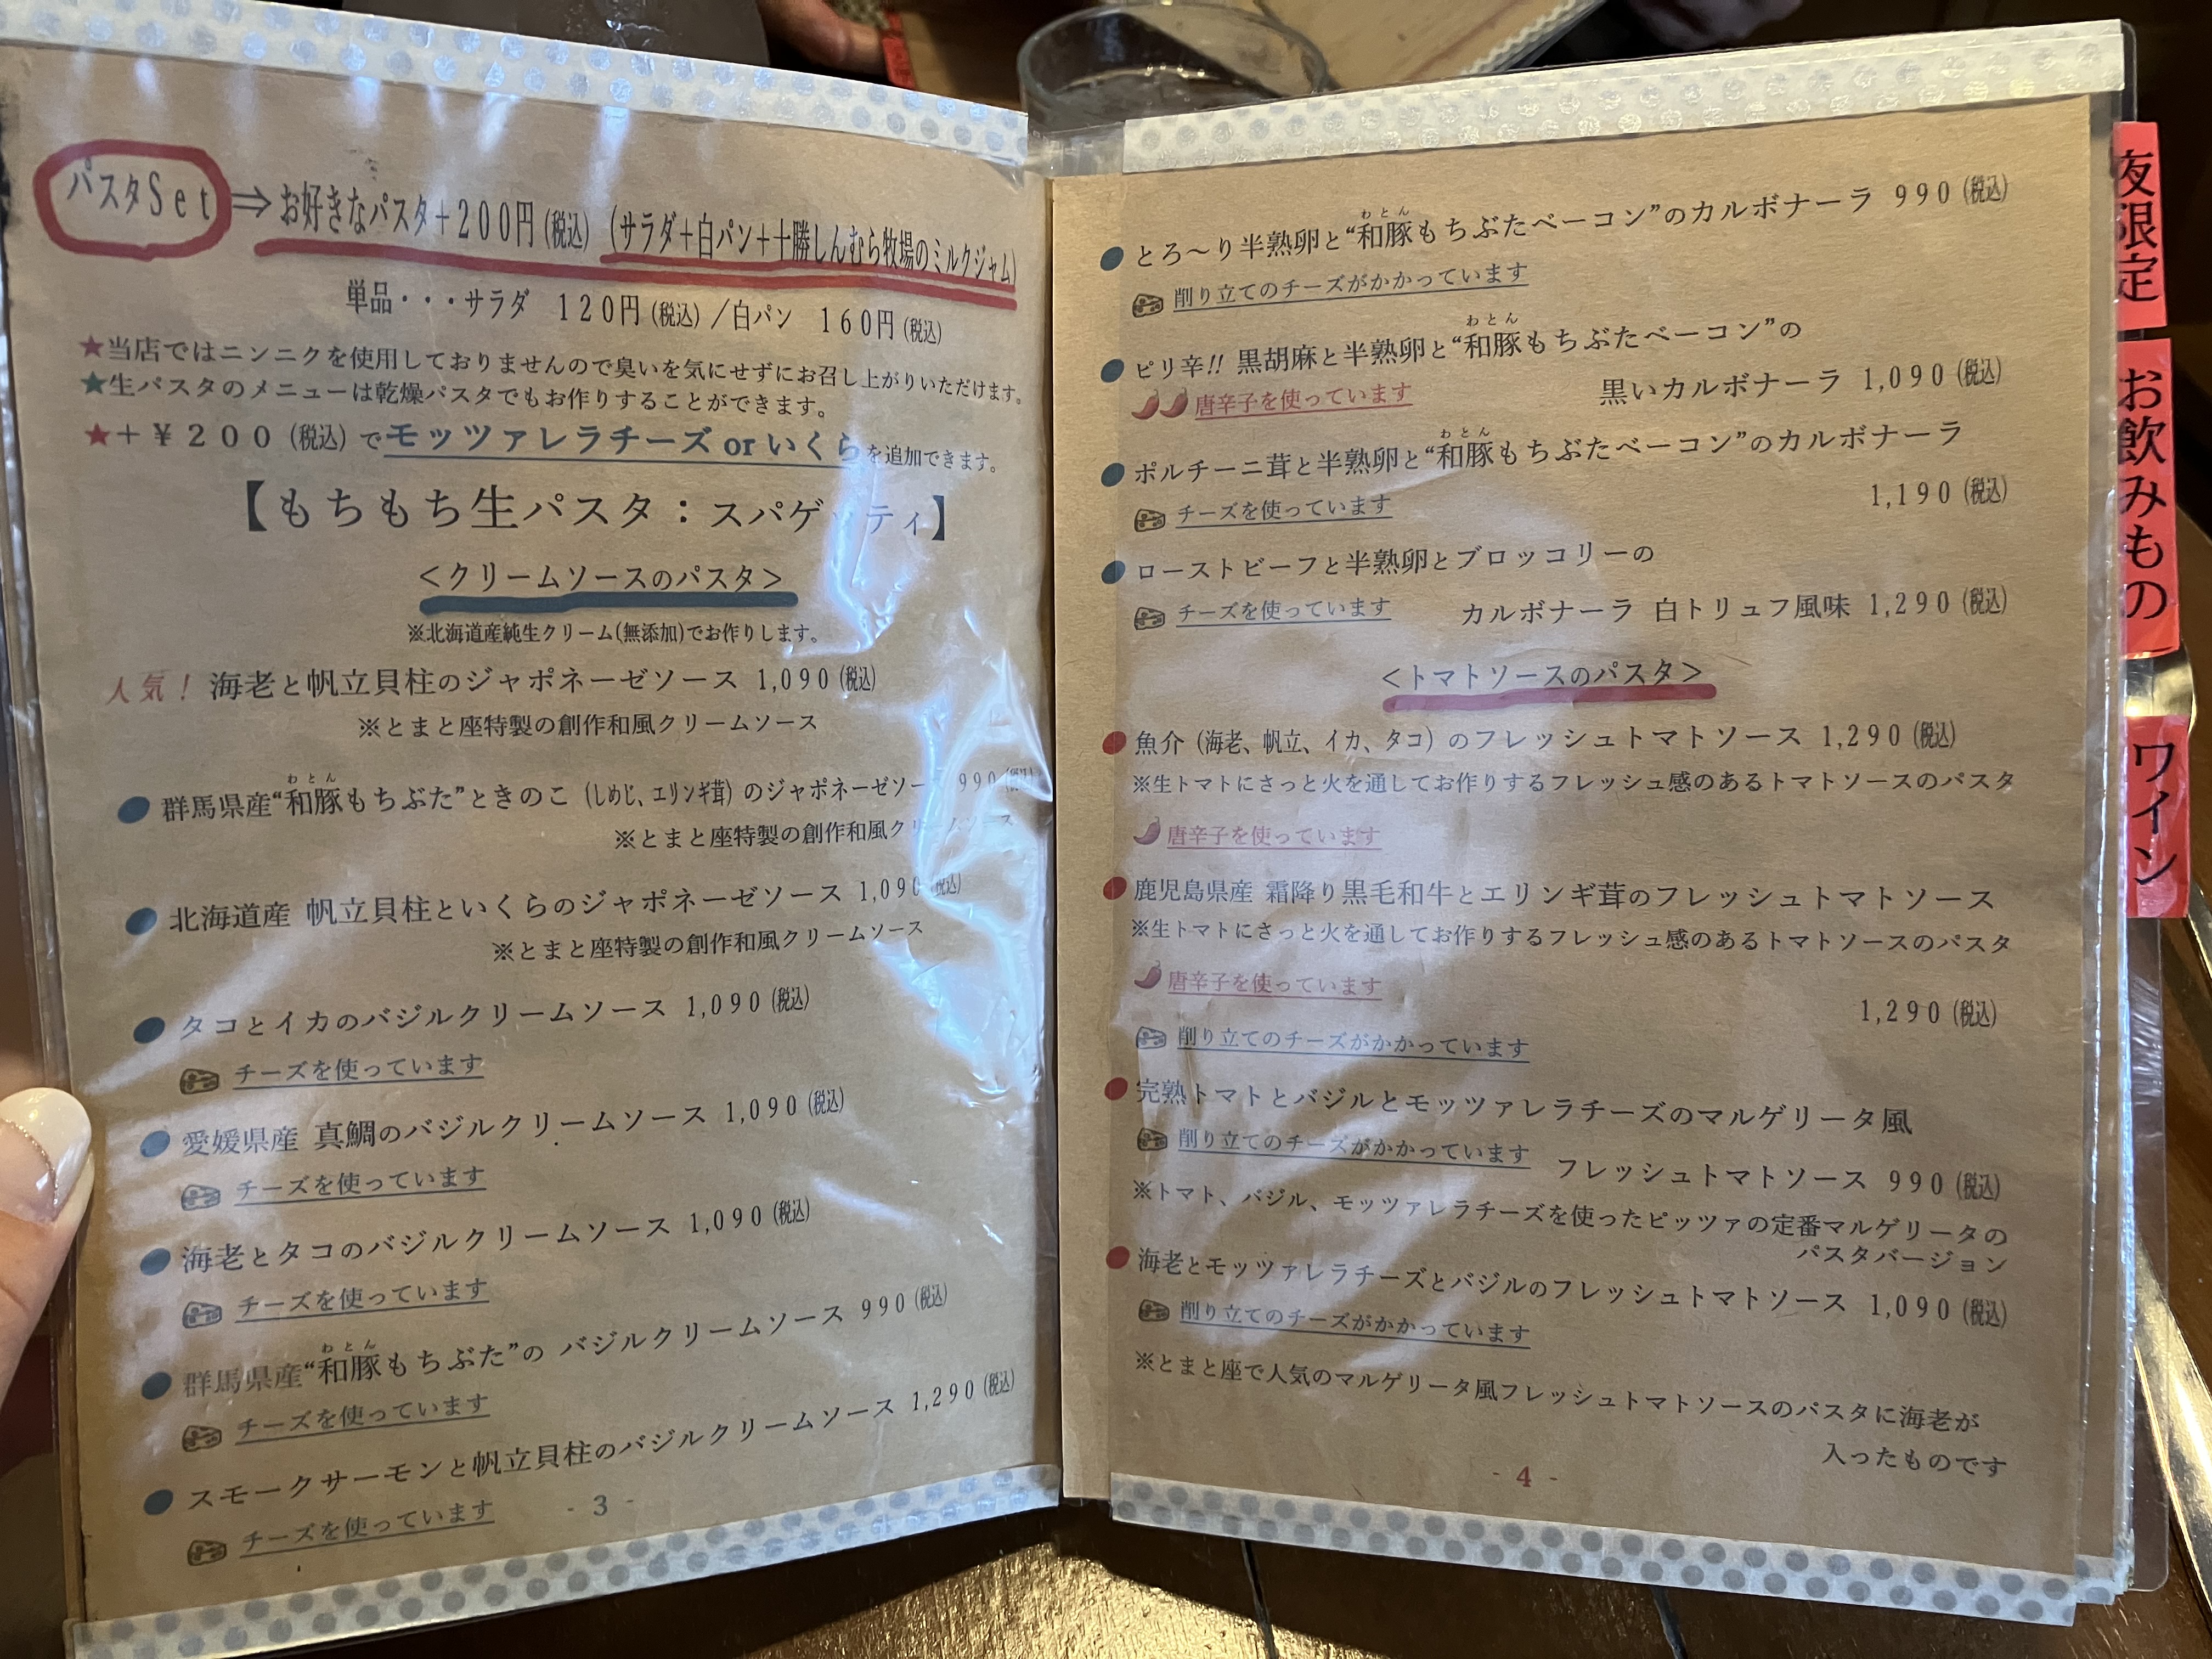 パスタSet ⇒お好きなパスタ+200円(税込) (サラダ+白パン+十勝しんむら牧場のミルクジャム)
単品・・・サラダ 120円(税込)/白パン 160円(税込)
★当店ではニンニクを使用しておりませんので臭いを気にせずにお召し上がりいただけます。
★生パスタのメニューは乾燥パスタでもお作りすることができます。
★+¥200(税込)でモッツァレラチーズ or いくらを追加できます。
【もちもち生パスタ:スパゲッティ】
<クリームソースのパスタ>
※北海道産純生クリーム(無添加)でお作りします。
人気! 海老と帆立貝柱のジャポネーゼソース 1,090(税込)
※とまと座特製の創作和風クリームソース
わとん
●群馬県産“和豚もちぶた”ときのこ(しめじ、エリンギ茸)のジャポネーゼソース 990(税込)
※とまと座特製の創作和風クリームソース
●北海道産 帆立貝柱といくらのジャポネーゼソース 1,090(税込)
※とまと座特製の創作和風クリームソース
●タコとイカのバジルクリームソース 1,090(税込)
チーズを使っています
●愛媛県産 真鯛のバジルクリームソース 1,090(税込)
チーズを使っています
●海老とタコのバジルクリームソース 1,090(税込)
チーズを使っています
わとん
●群馬県産“和豚もちぶた”の バジルクリームソース 990(税込)
チーズを使っています
●スモークサーモンと帆立貝柱のバジルクリームソース 1,290(税込)
チーズを使っています
- 3 -
わとん
●とろ～り半熟卵と“和豚もちぶたベーコン”のカルボナーラ 990(税込)
削り立てのチーズがかかっています
わとん
●ピリ辛!! 黒胡麻と半熟卵と“和豚もちぶたベーコン”の
黒いカルボナーラ 1,090(税込)
唐辛子を使っています
わとん
●ポルチーニ茸と半熟卵と“和豚もちぶたベーコン”のカルボナーラ
1,190(税込)
チーズを使っています
●ローストビーフと半熟卵とブロッコリーの
カルボナーラ 白トリュフ風味 1,290(税込)
チーズを使っています
<トマトソースのパスタ>
●魚介(海老、帆立、イカ、タコ)のフレッシュトマトソース 1,290(税込)
※生トマトにさっと火を通してお作りするフレッシュ感のあるトマトソースのパスタ
唐辛子を使っています
●鹿児島県産 霜降り黒毛和牛とエリンギ茸のフレッシュトマトソース
※生トマトにさっと火を通してお作りするフレッシュ感のあるトマトソースのパスタ
唐辛子を使っています
1,290(税込)
削り立てのチーズがかかっています
●完熟トマトとバジルとモッツァレラチーズのマルゲリータ風
削り立てのチーズがかかっています
フレッシュトマトソース 990(税込)
※トマト、バジル、モッツァレラチーズを使ったピッツァの定番マルゲリータの
パスタバージョン
●海老とモッツァレラチーズとバジルのフレッシュトマトソース 1,090(税込)
削り立てのチーズがかかっています
※とまと座で人気のマルゲリータ風フレッシュトマトソースのパスタに海老が
入ったものです
- 4 -
夜限定
お飲みもの
ワイン